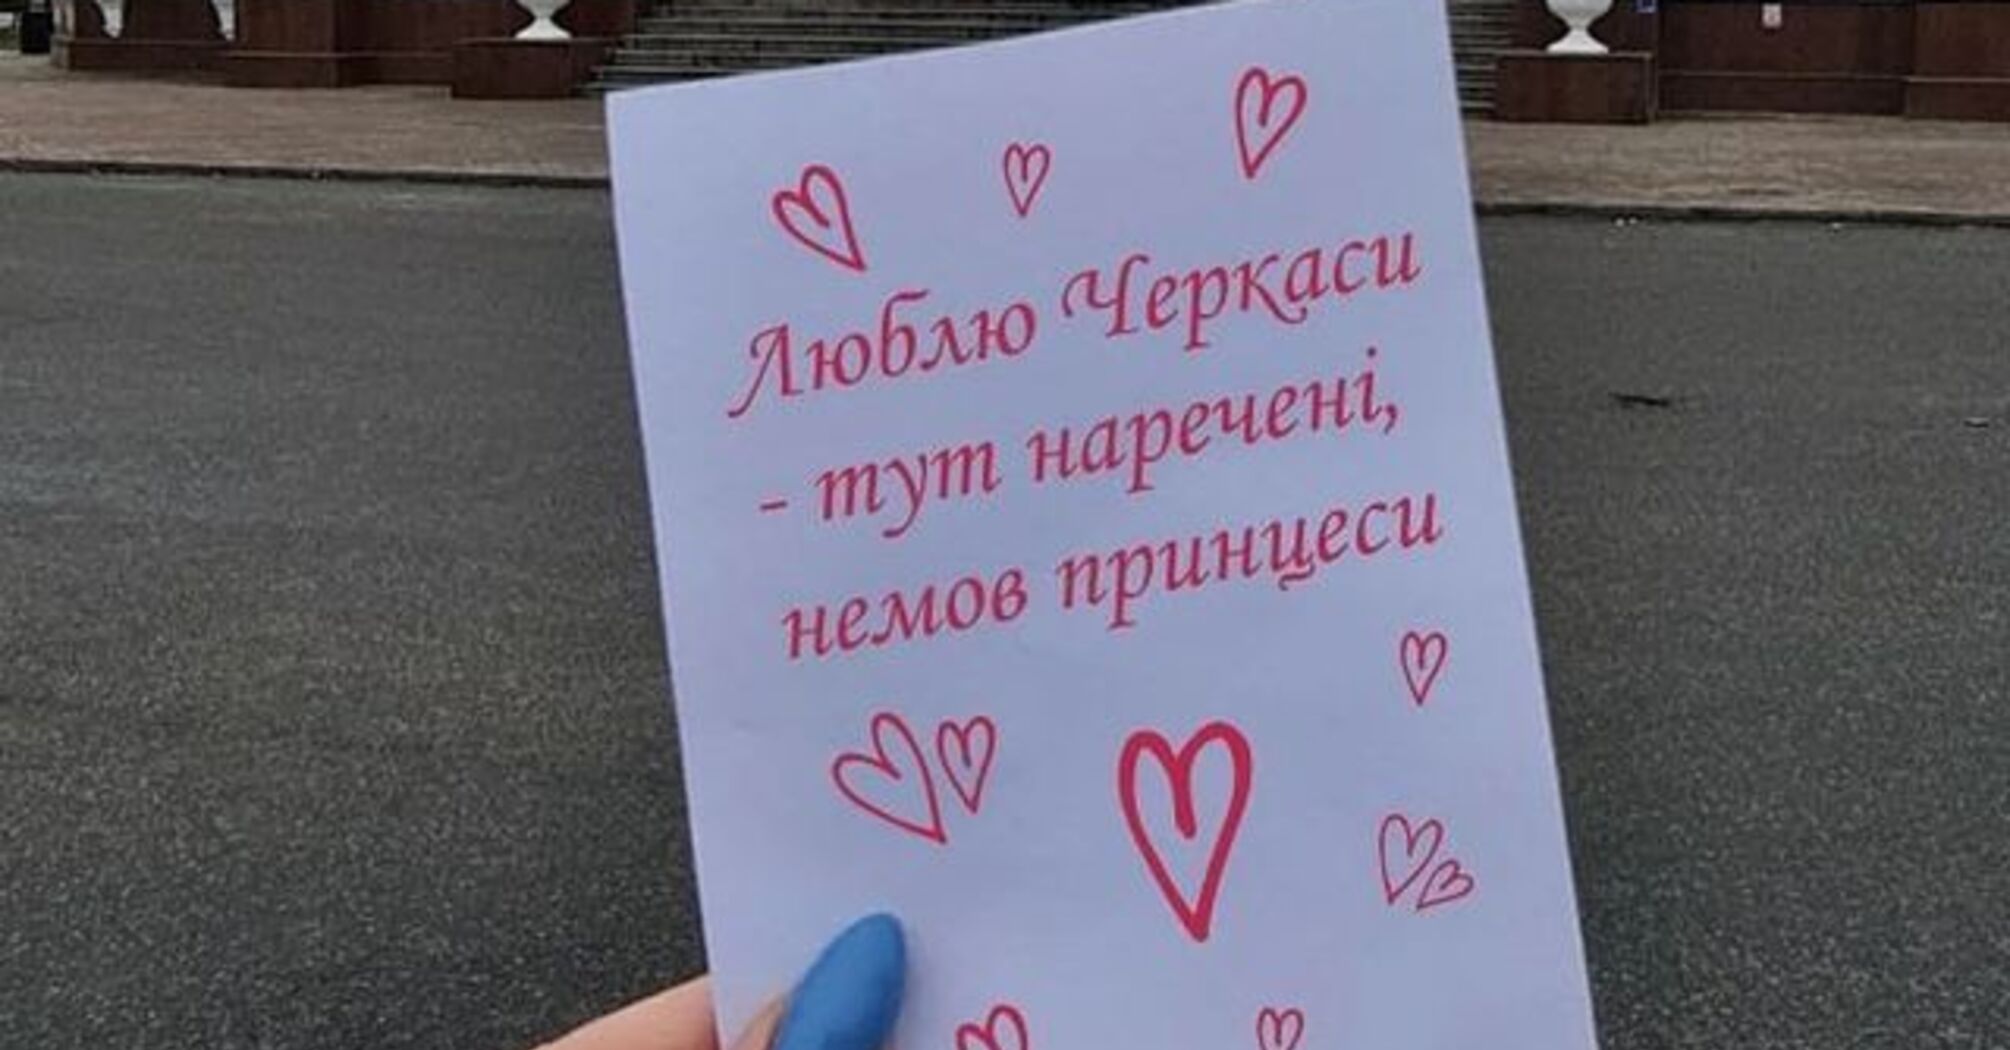 Люблю Черкаси
- тут наречені,
немов принцеси